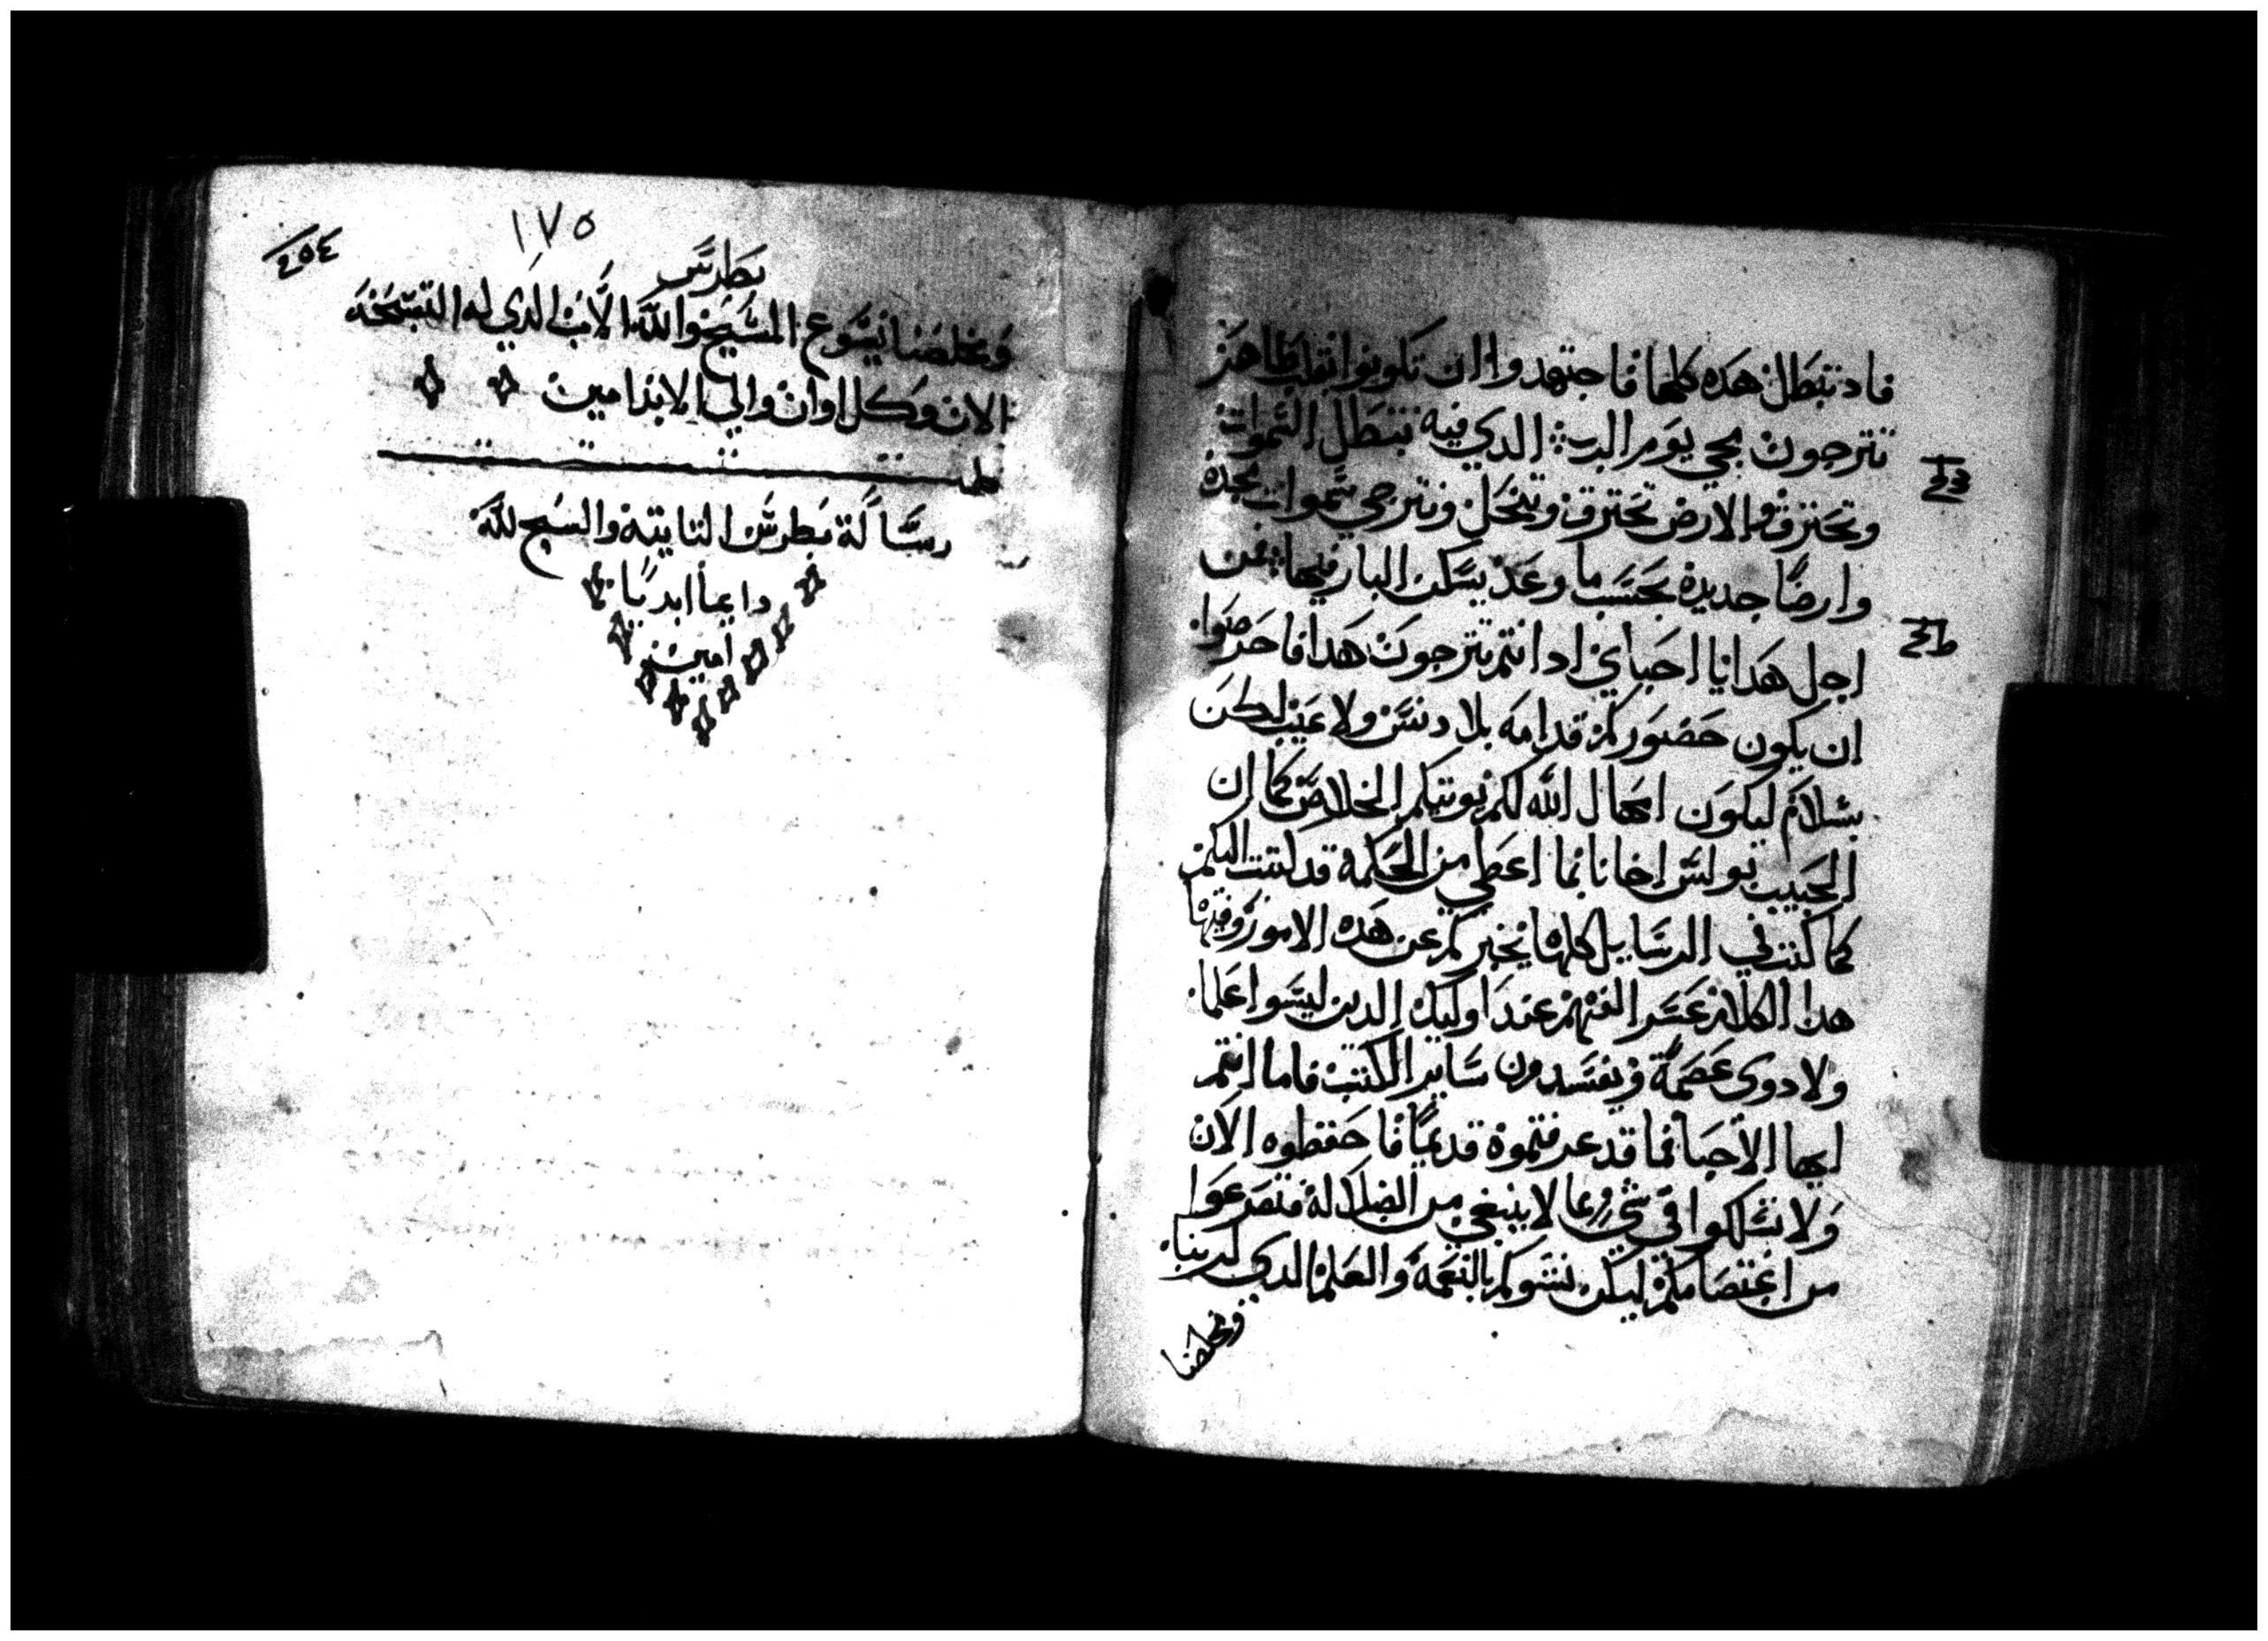 فاد تبطل هده كلها فاجتهدوا ان تكونوا بقلب طاهر
تترجون مجي يوم الرب الدي فيه تبطل السموات
وتحترق والارض تحترق وتنحل ونترجي سموات جدد
وارضًا جديدة بحسب ما وعد يسكن البار فيها من
اجل هدا يا احباي اد انتم تترجون هدا فاحرصوا
ان يكون حضوركم قدامه بلا دنس ولا عيب لكن
بسلام ليكون امهال الله لكم يوتيكم الخلاص كما ان
الحبيب بولس اخانا بما اعطي من الحكمة قد كتب اليكم
كما كتب في الرسايل كلها يخبركم عن هده الامور وفيها
هدا الكلام عسر الفهم عند اوليك الدين ليسوا علما
ولا دوى عصمة ويفسدون ساير الكتب فاما انتم
ايها الاحبا بما قد عرفتموه قديمًا فاحفظوه الان
ولا تسلكوا في شي مما لا ينبغي من الضلالة فتصرعوا
من اعتصامكم ليكن نشوكم بالنعمة والعلم الدي لربنا
ومخلصنا
٢٥٤
١٧٥
بطرس
ومخلصنا يسوع المسيح والله الاب الدي له التسبحة
الان وكل اوان والي الابد امين
رسالة بطرس التانية والسبح لله
دايمًا ابديًا
امين